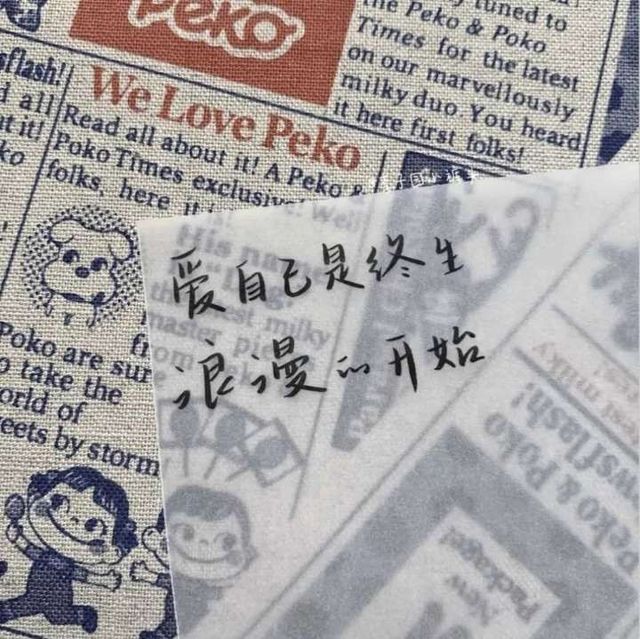 Peko
tuned to
the Peko & Poko
Times for the latest
on our marvellously
milky duo. You heard
it here first folks!
wsflash!
all
it!
We Love Peko
Read all about it! A Peko &
Poko Times exclusive! Well
folks, here it i
His name
milky
master pie
爱自己是终生
浪漫的开始
Poko are sure
o take the
orld of
eets by storm
wsflash!
Peko & Poko
New
Package!